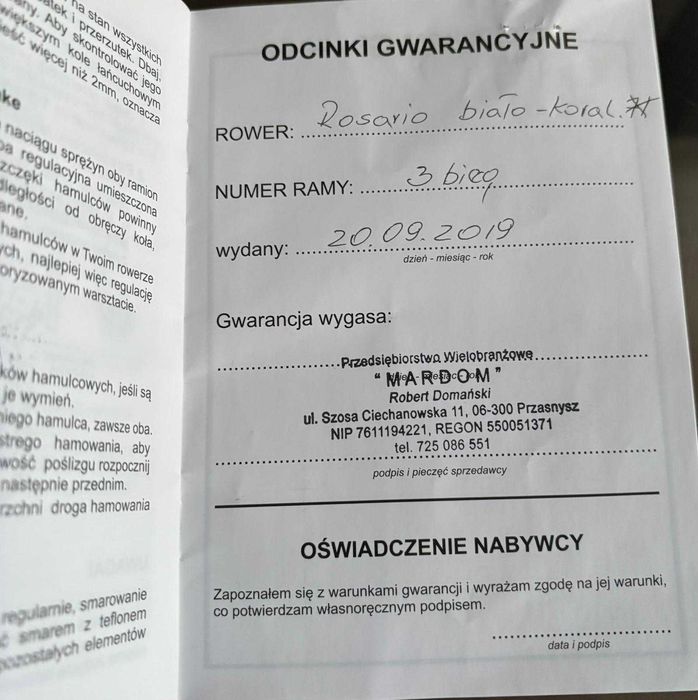 na stan wszystkich
i przerzutek. Dbaj,
Aby skontrolować jego
większym kole łańcuchowym
więcej niż 2mm, oznacza
naciągu sprężyn oby ramion
regulacyjna umieszczona
hamulców powinny
odległości od obręczy koła,
hamulców w Twoim rowerze
najlepiej więc regulację
warsztacie.
hamulcowych, jeśli są
je wymień.
hamulca, zawsze oba.
hamowania, aby
poślizgu rozpocznij
następnie przednim.
droga hamowania
regularnie, smarowanie
smarem z teflonem
pozostałych elementów
ODCINKI GWARANCYJNE
ROWER: Rosario biało-koral.
NUMER RAMY: 3 bieg
wydany: 20.09.2019
dzień - miesiąc - rok
Gwarancja wygasa:
Przedsiębiorstwo Wielobranżowe
"MARDOM"
Robert Domański
ul. Szosa Ciechanowska 11, 06-300 Przasnysz
NIP 7611194221, REGON 550051371
tel. 725 086 551
podpis i pieczęć sprzedawcy
OŚWIADCZENIE NABYWCY
Zapoznałem się z warunkami gwarancji i wyrażam zgodę na jej warunki,
co potwierdzam własnoręcznym podpisem.
data i podpis